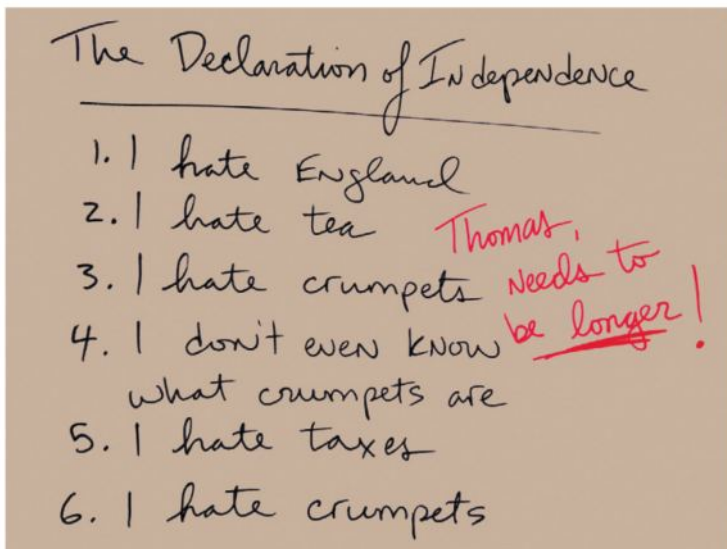 The Declaration of Independence
1. I hate England
2. I hate tea
3. I hate crumpets
4. I don't even know
what crumpets are
5. I hate taxes
6. I hate crumpets
Thomas,
needs to
be longer!